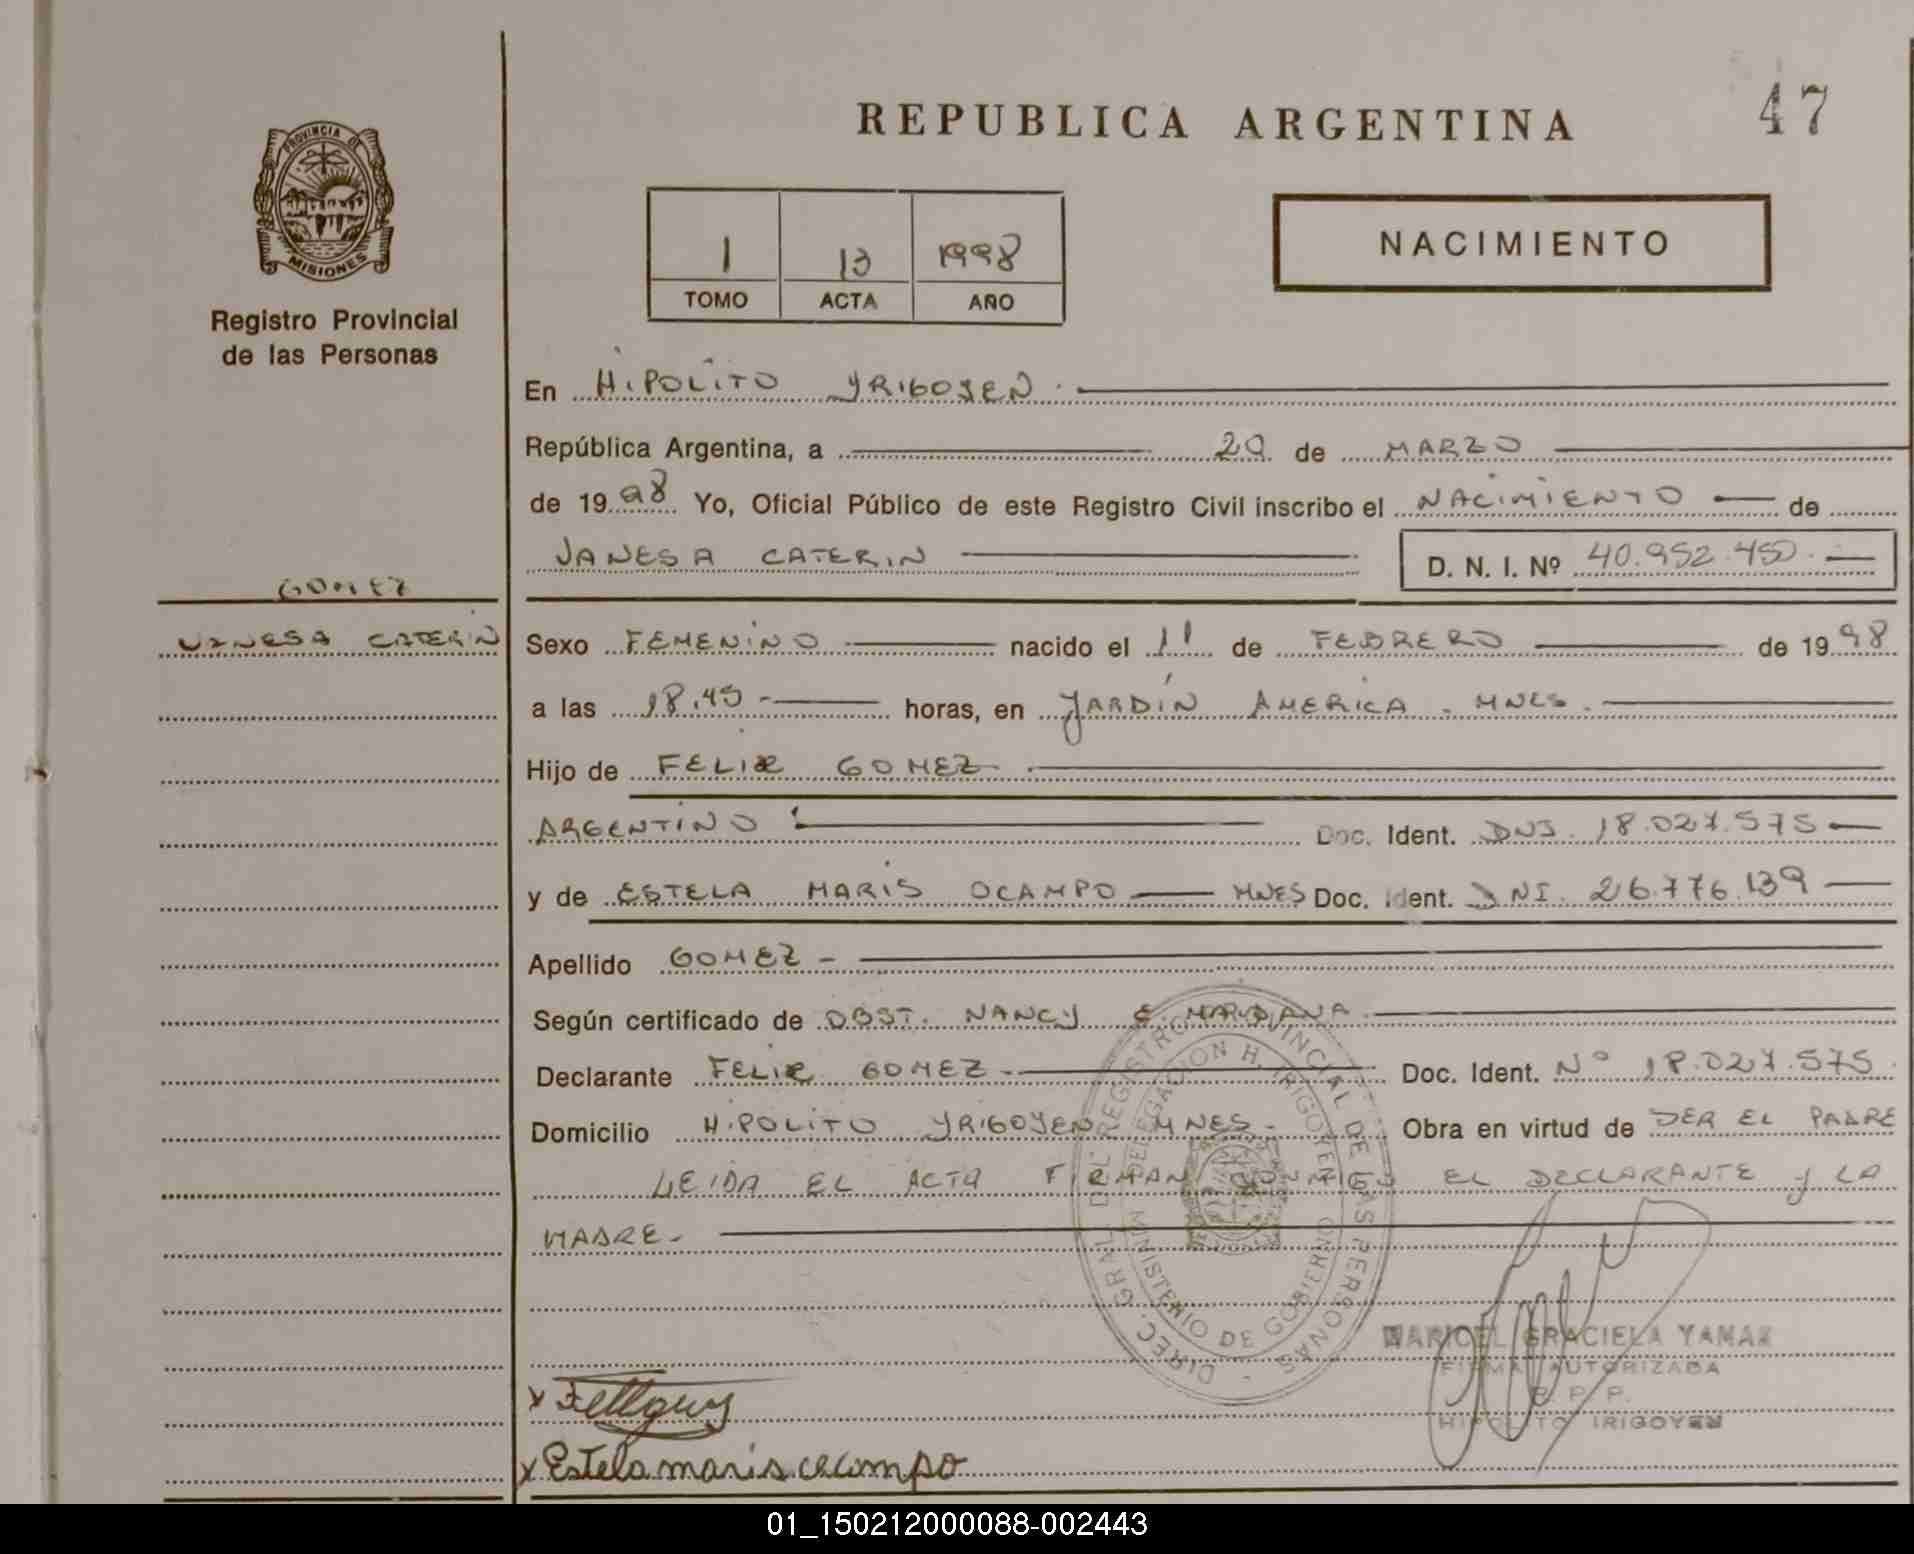 REPUBLICA ARGENTINA
47
PROVINCIA DE
MISIONES
Registro Provincial
de las Personas
1 13 1998
TOMO ACTA AÑO
NACIMIENTO
En HIPOLITO YRIGOYEN.
República Argentina, a 20 de MARZO
de 1998 Yo, Oficial Público de este Registro Civil inscribo el NACIMIENTO de
VANESA CATERIN D. N. I. Nº 40.952.450.
GOMEZ
VANESA CATERIN
Sexo FEMENINO nacido el 11 de FEBRERO de 1998
a las 18,45 horas, en JARDIN AMERICA. MNES.
Hijo de FELIX GOMEZ
ARGENTINO Doc. Ident. DNI. 18.027.575
y de ESTELA MARIS OCAMPO MNES Doc. Ident. DNI. 26.776.139
Apellido GOMEZ
Según certificado de OBST. NANCY E.
Declarante FELIX GOMEZ Doc. Ident. Nº 18.027.575
Domicilio HIPOLITO YRIGOYEN MNES. Obra en virtud de SER EL PADRE
LEIDA EL ACTA FIRMAN CONMIGO EL DECLARANTE Y LA
MADRE.
DIREC. GRAL. DEL REGISTRO PROVINCIAL DE LAS PERSONAS
DELEGACION H. IRIGOYEN
MINISTERIO DE GOBIERNO
GRACIELA YAMAK
FIRMA AUTORIZADA
R. P. P.
HIPOLITO IRIGOYEN
x
x Estela maris ocampo
01_150212000088-002443